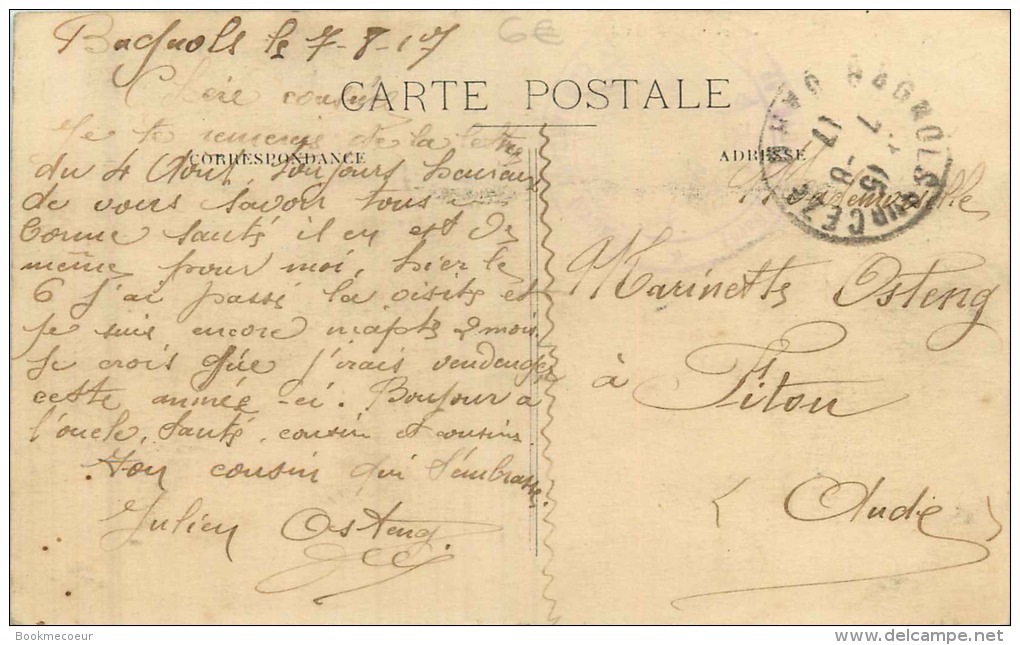 6€
Bagnols le 7-8-17
CARTE POSTALE
Chère cousine
CORRESPONDANCE
ADRESSE
Je te remercis de la lettre
du 4 Aout, toujours heureux
de vous savoir tous
bonne santé il en est de
même pour moi, hier le
6 j'ai passé la visite et
je suis encore inapte 2 mois
Je crois que j'irais vendanger
cette année-ci. Bonjour à
l'oncle, tante, cousin et cousine
Ton cousin qui t'embrasse.
Julien Osteng
BAGNOLS SUR CEZE
GARD
15
7 -8
17
Mademoiselle
Marinette Osteng
à Fitou
(Aude)
Bookmecoeur
http://www.delcampe.net